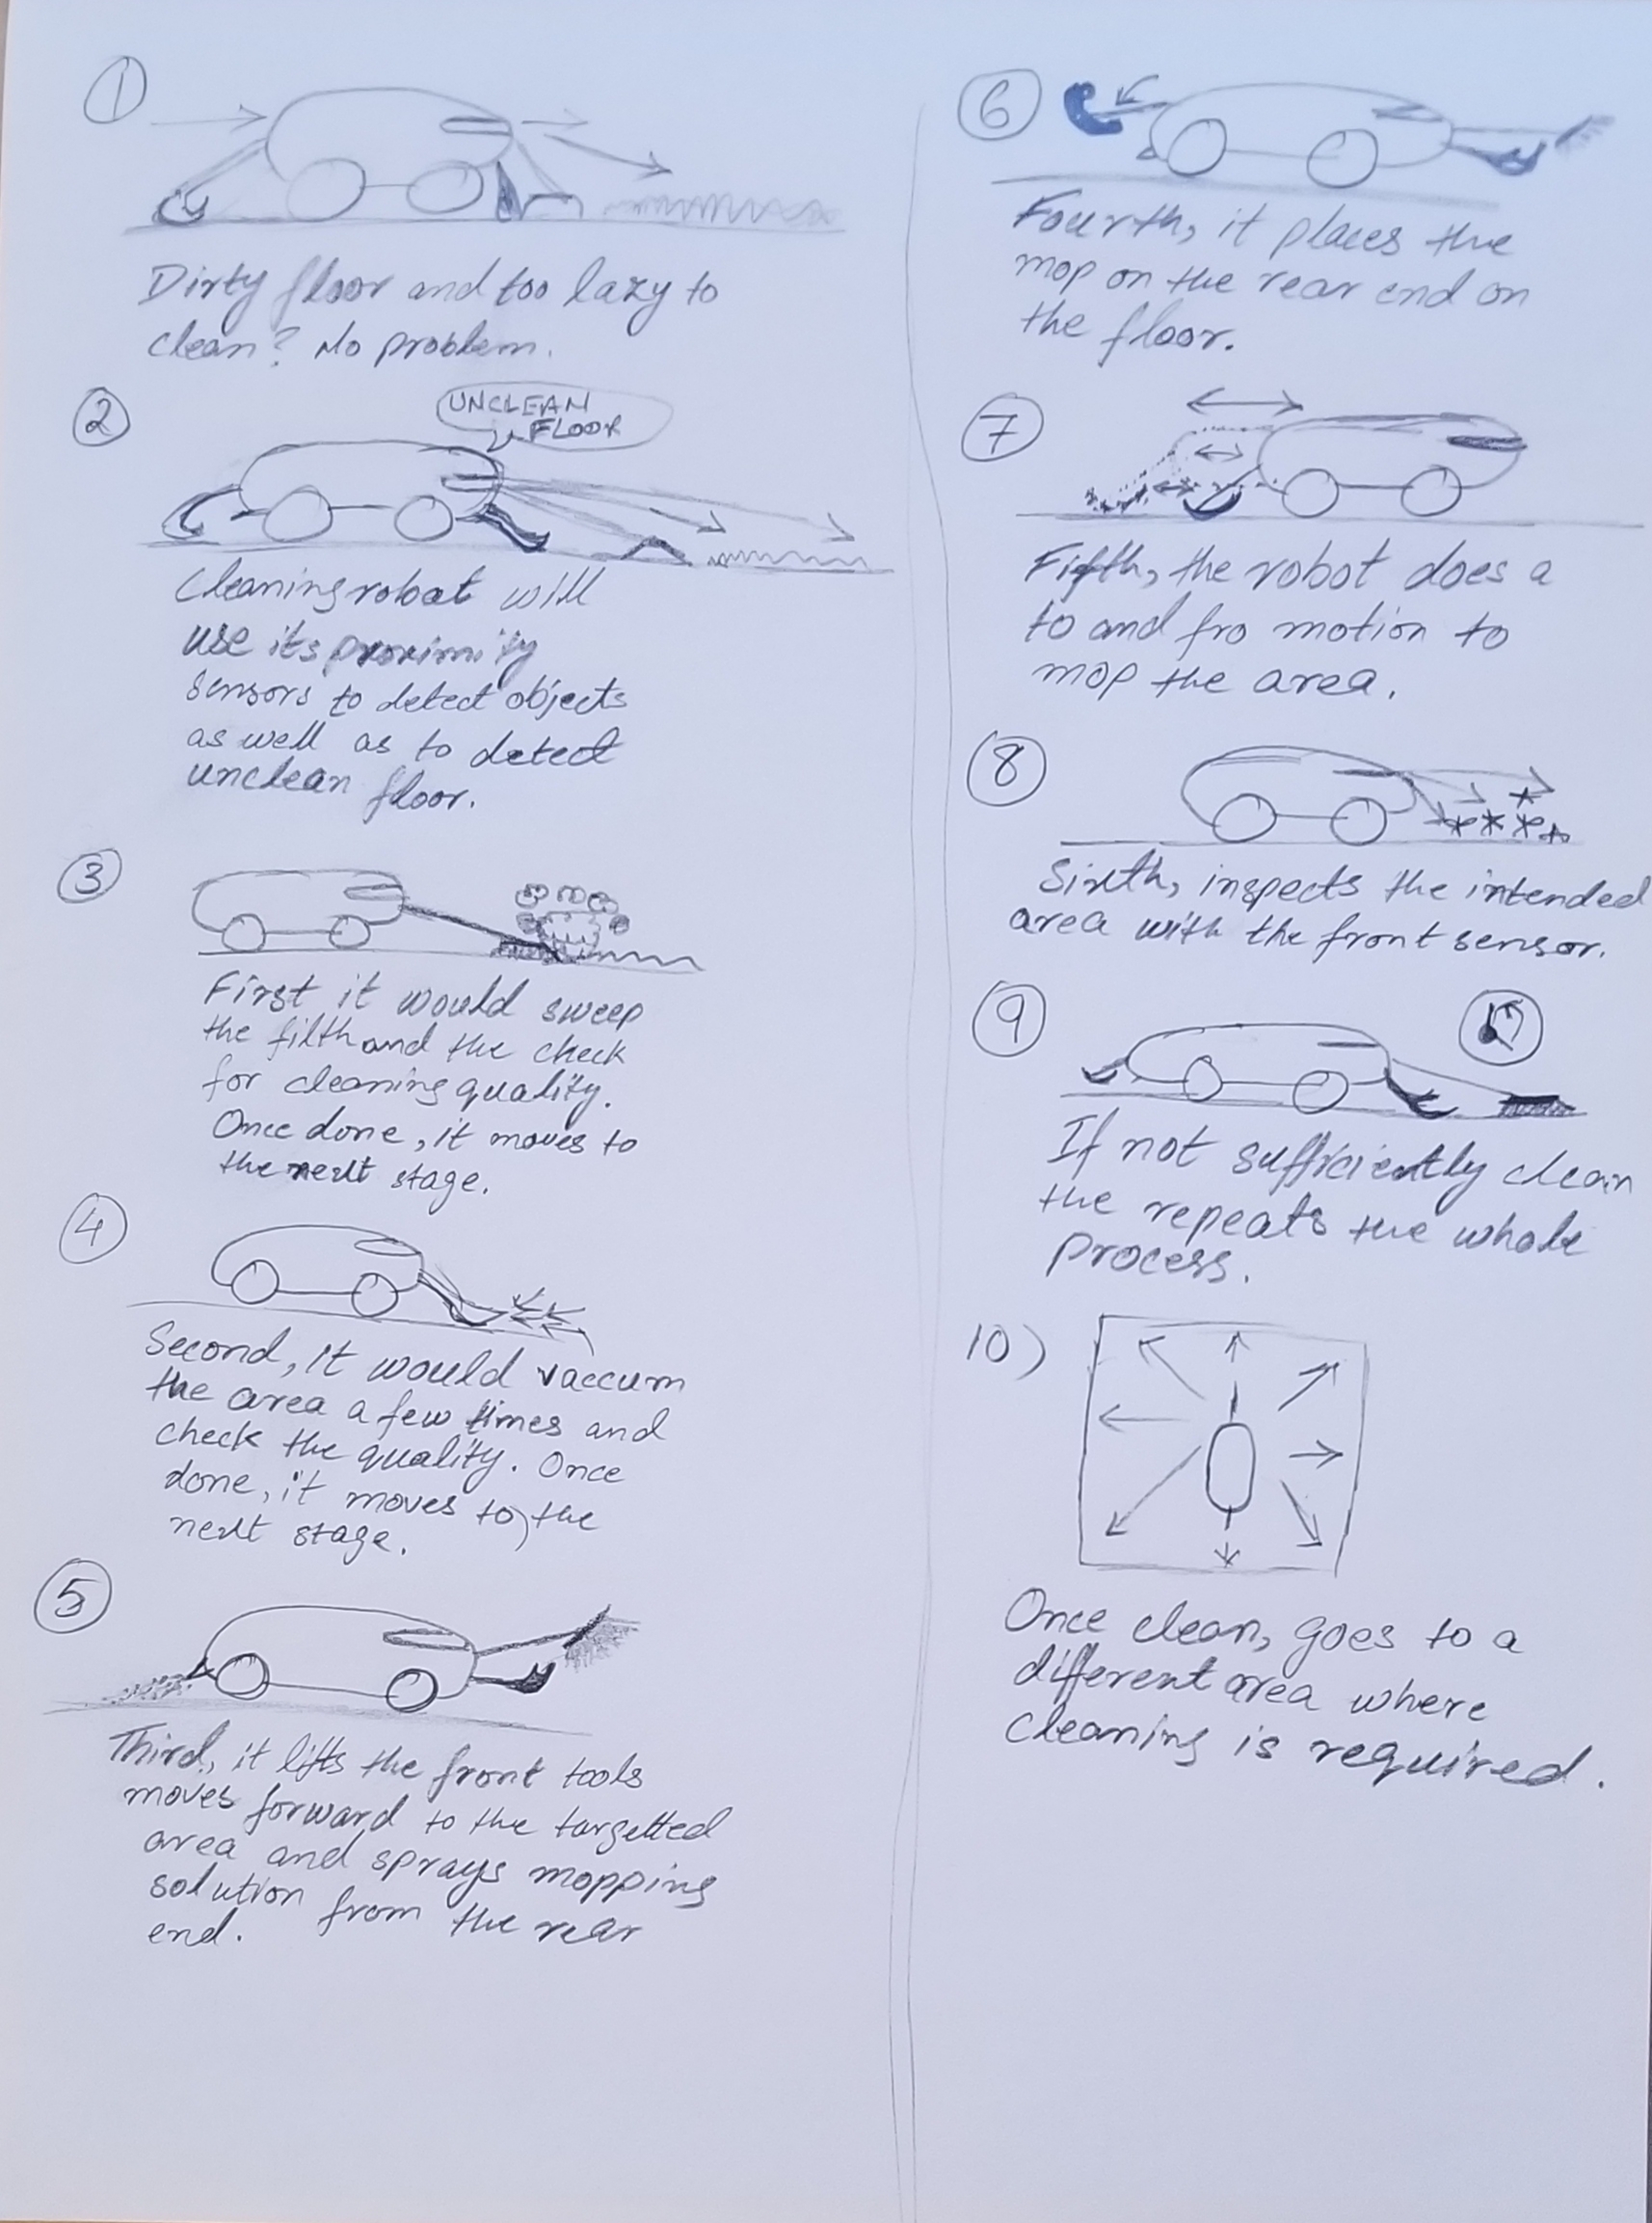 1
Dirty floor and too lazy to
clean? No problem.
2
UNCLEAN
FLOOR
Cleaning robot will
use its proximity
sensors to detect objects
as well as to detect
unclean floor.
3
First it would sweep
the filth and the check
for cleaning quality.
Once done, it moves to
the next stage.
4
Second, it would vaccum
the area a few times and
check the quality. Once
done, it moves to the
next stage.
5
Third, it lifts the front tools
moves forward to the targetted
area and sprays mopping
solution from the rear
end.
6
Fourth, it places the
mop on the rear end on
the floor.
7
Fifth, the robot does a
to and fro motion to
mop the area.
8
Sixth, inspects the intended
area with the front sensor.
9
If not sufficiently clean
the repeats the whole
process.
10)
Once clean, goes to a
different area where
cleaning is required.